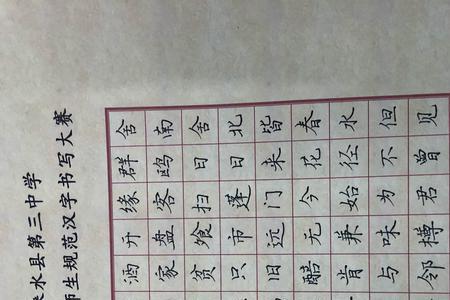 水县第三中学
师生规范汉字书写大赛
舍南舍北皆春水但见
群鸥日日来花径不曾
缘客扫蓬门今始为君
开盘飧市远无兼味樽
酒家贫只旧醅肯与邻